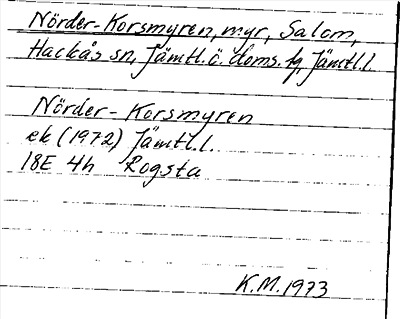 Nörder-Korsmyren, myr, Salom,
Hackås sn, Jämtl. ö. doms. tg, Jämtl.l.
Nörder-Korsmyren
ek (1972) Jämtl.l.
18E 4h Rogsta
K.M. 1973